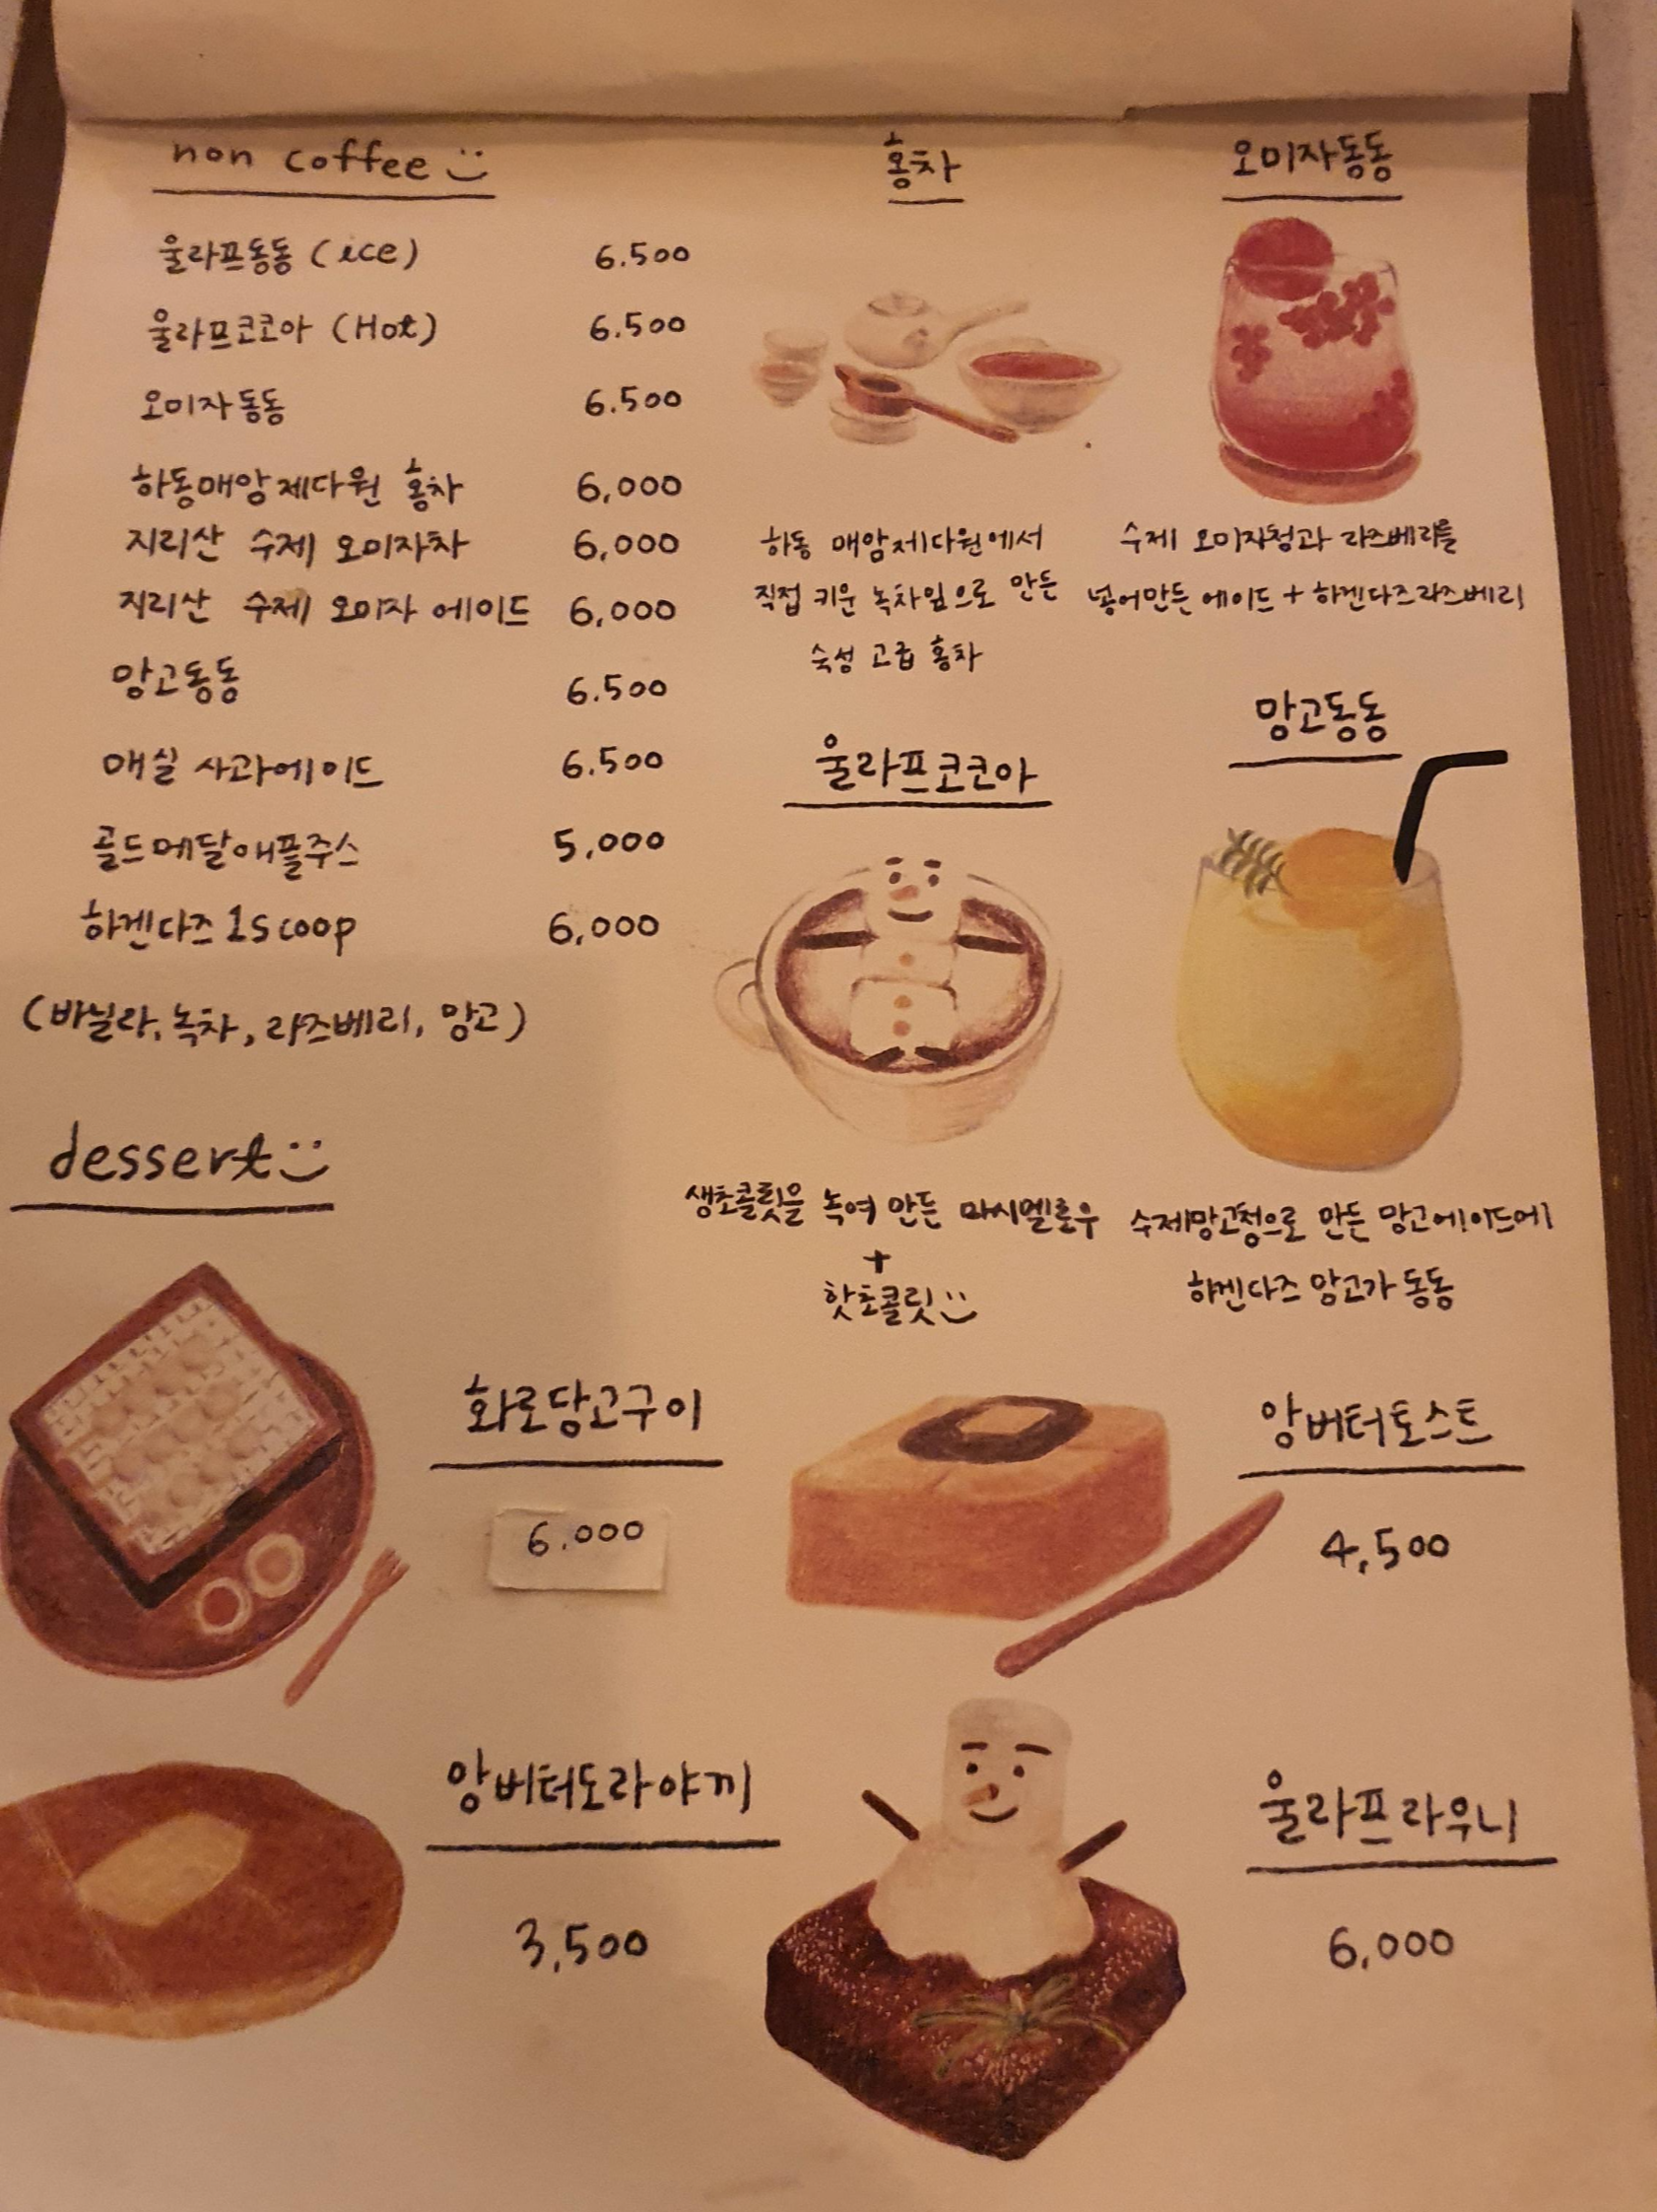 non coffee
울라프동동 (ice) 6.500
울라프코코아 (Hot) 6.500
오미자동동 6.500
하동매암제다원 홍차 6,000
지리산 수제 오미자차 6,000
지리산 수제 오미자 에이드 6,000
망고동동 6.500
매실 사과에이드 6.500
골드메달애플주스 5,000
하겐다즈 1scoop 6,000
(바닐라, 녹차, 라즈베리, 망고)
홍차
하동 매암제다원에서
직접 키운 녹차잎으로 만든
숙성 고급 홍차
오미자동동
수제 오미자청과 라즈베리를
넣어만든 에이드 + 하겐다즈라즈베리
울라프코코아
생초콜릿을 녹여 만든 마시멜로우
+
핫초콜릿
망고동동
수제망고청으로 만든 망고에이드에
하겐다즈 망고가 동동
dessert
화로당고구이
6.000
앙버터토스트
4,500
앙버터도라야끼
3,500
울라프라우니
6,000